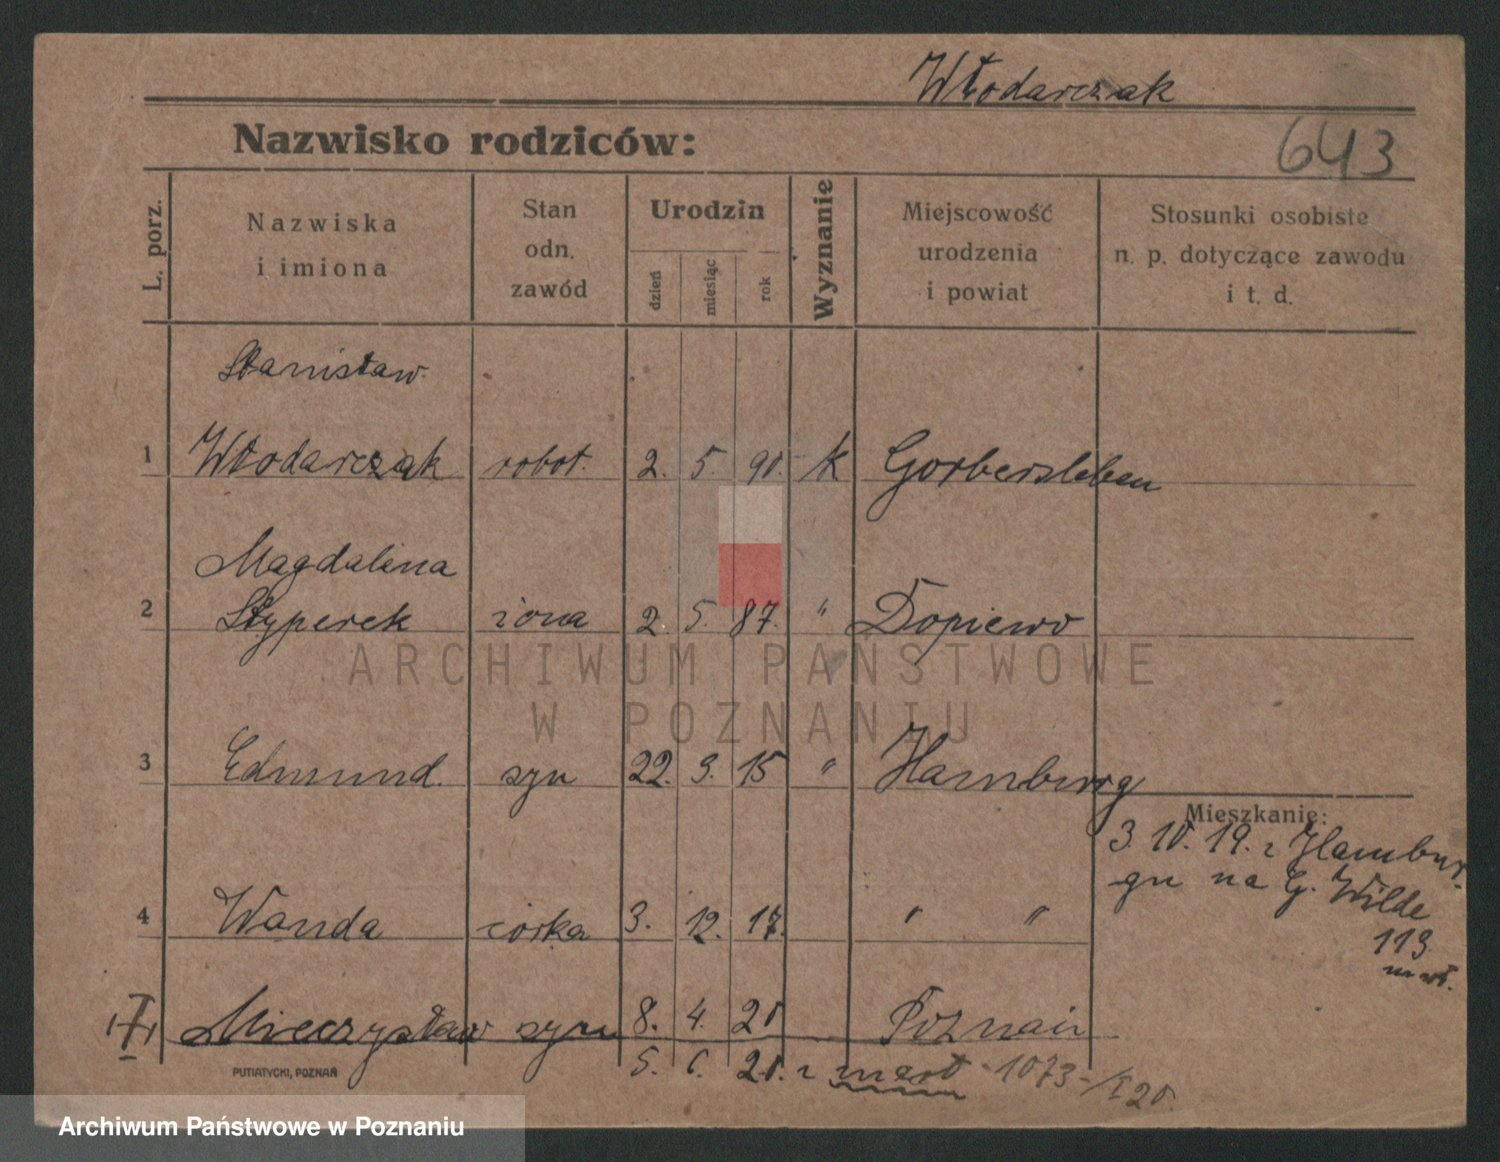 Włodarczak
Nazwisko rodziców:
643
L. porz.
Nazwiska
i imiona
Stan
odn.
zawód
Urodzin
dzień
miesiąc
rok
Wyznanie
Miejscowość
urodzenia
i powiat
Stosunki osobiste
n. p. dotyczące zawodu
i t. d.
Stanisław
1 Włodarczak robot. 2. 5. 90. k Gorbersleben
Magdalena
2 Styperek żona 2. 5. 87. " Dopiewo
ARCHIWUM PAŃSTWOWE
W POZNANIU
3 Edmund. syn 22. 9. 15 " Hamburg
Mieszkanie:
3. 10. 19. z Hambur-
gu na G. Wilde
113
4 Wanda córka 3. 12. 17. " "
Mieczysław syn 8. 4. 20 Poznań
5. 6. 20. zmarł 1073
PUTIATYCKI, POZNAŃ
Archiwum Państwowe w Poznaniu